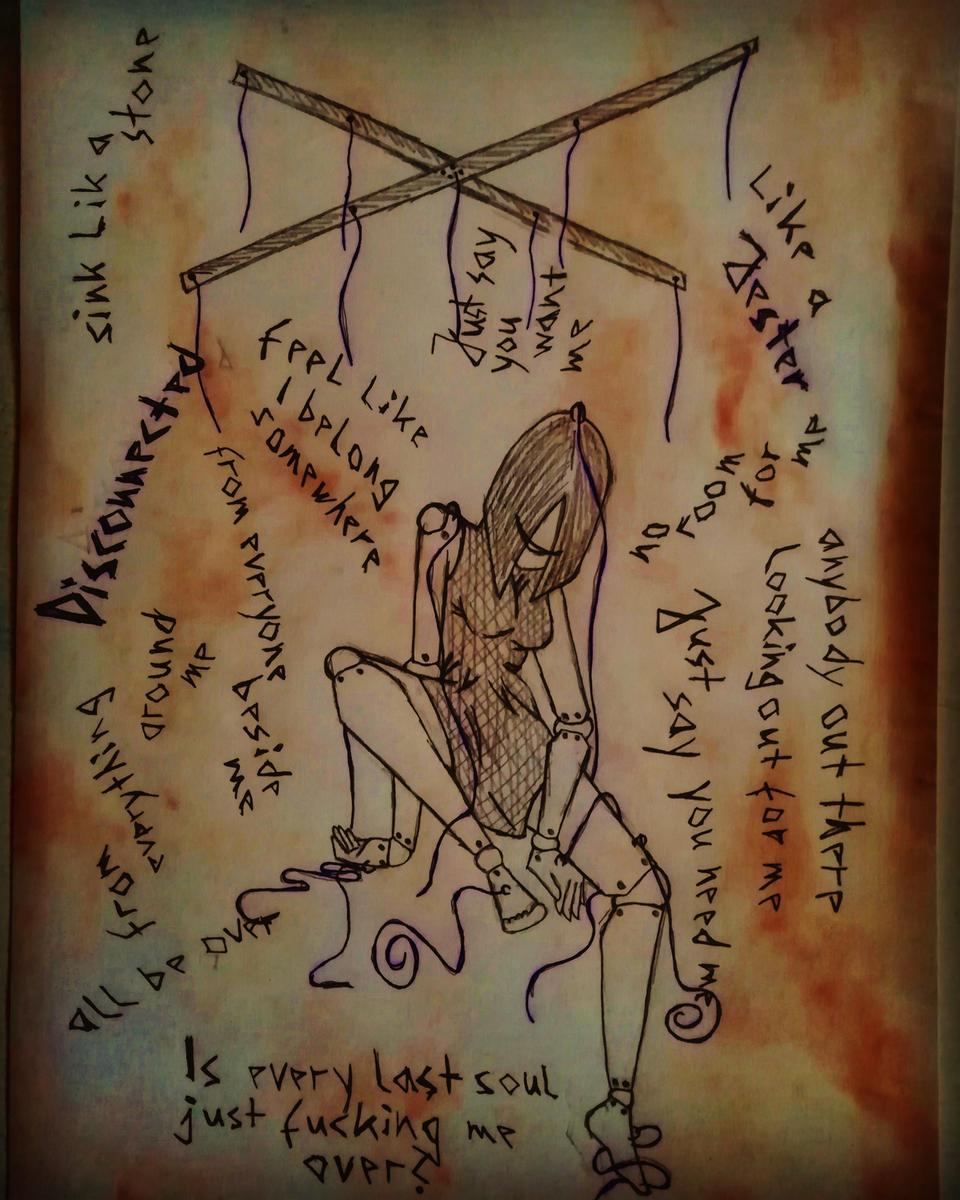 sink Lik a
stone
Just say
you
want
me
Like a
Jester
no
room
for
me
feel Like
I belong
somewhere
Disconnected
from everyone beside
me
from
everything
around
me
all be over
Just say you need me
anybody out there
Looking out for me
Is every last soul
just fucking me
over?